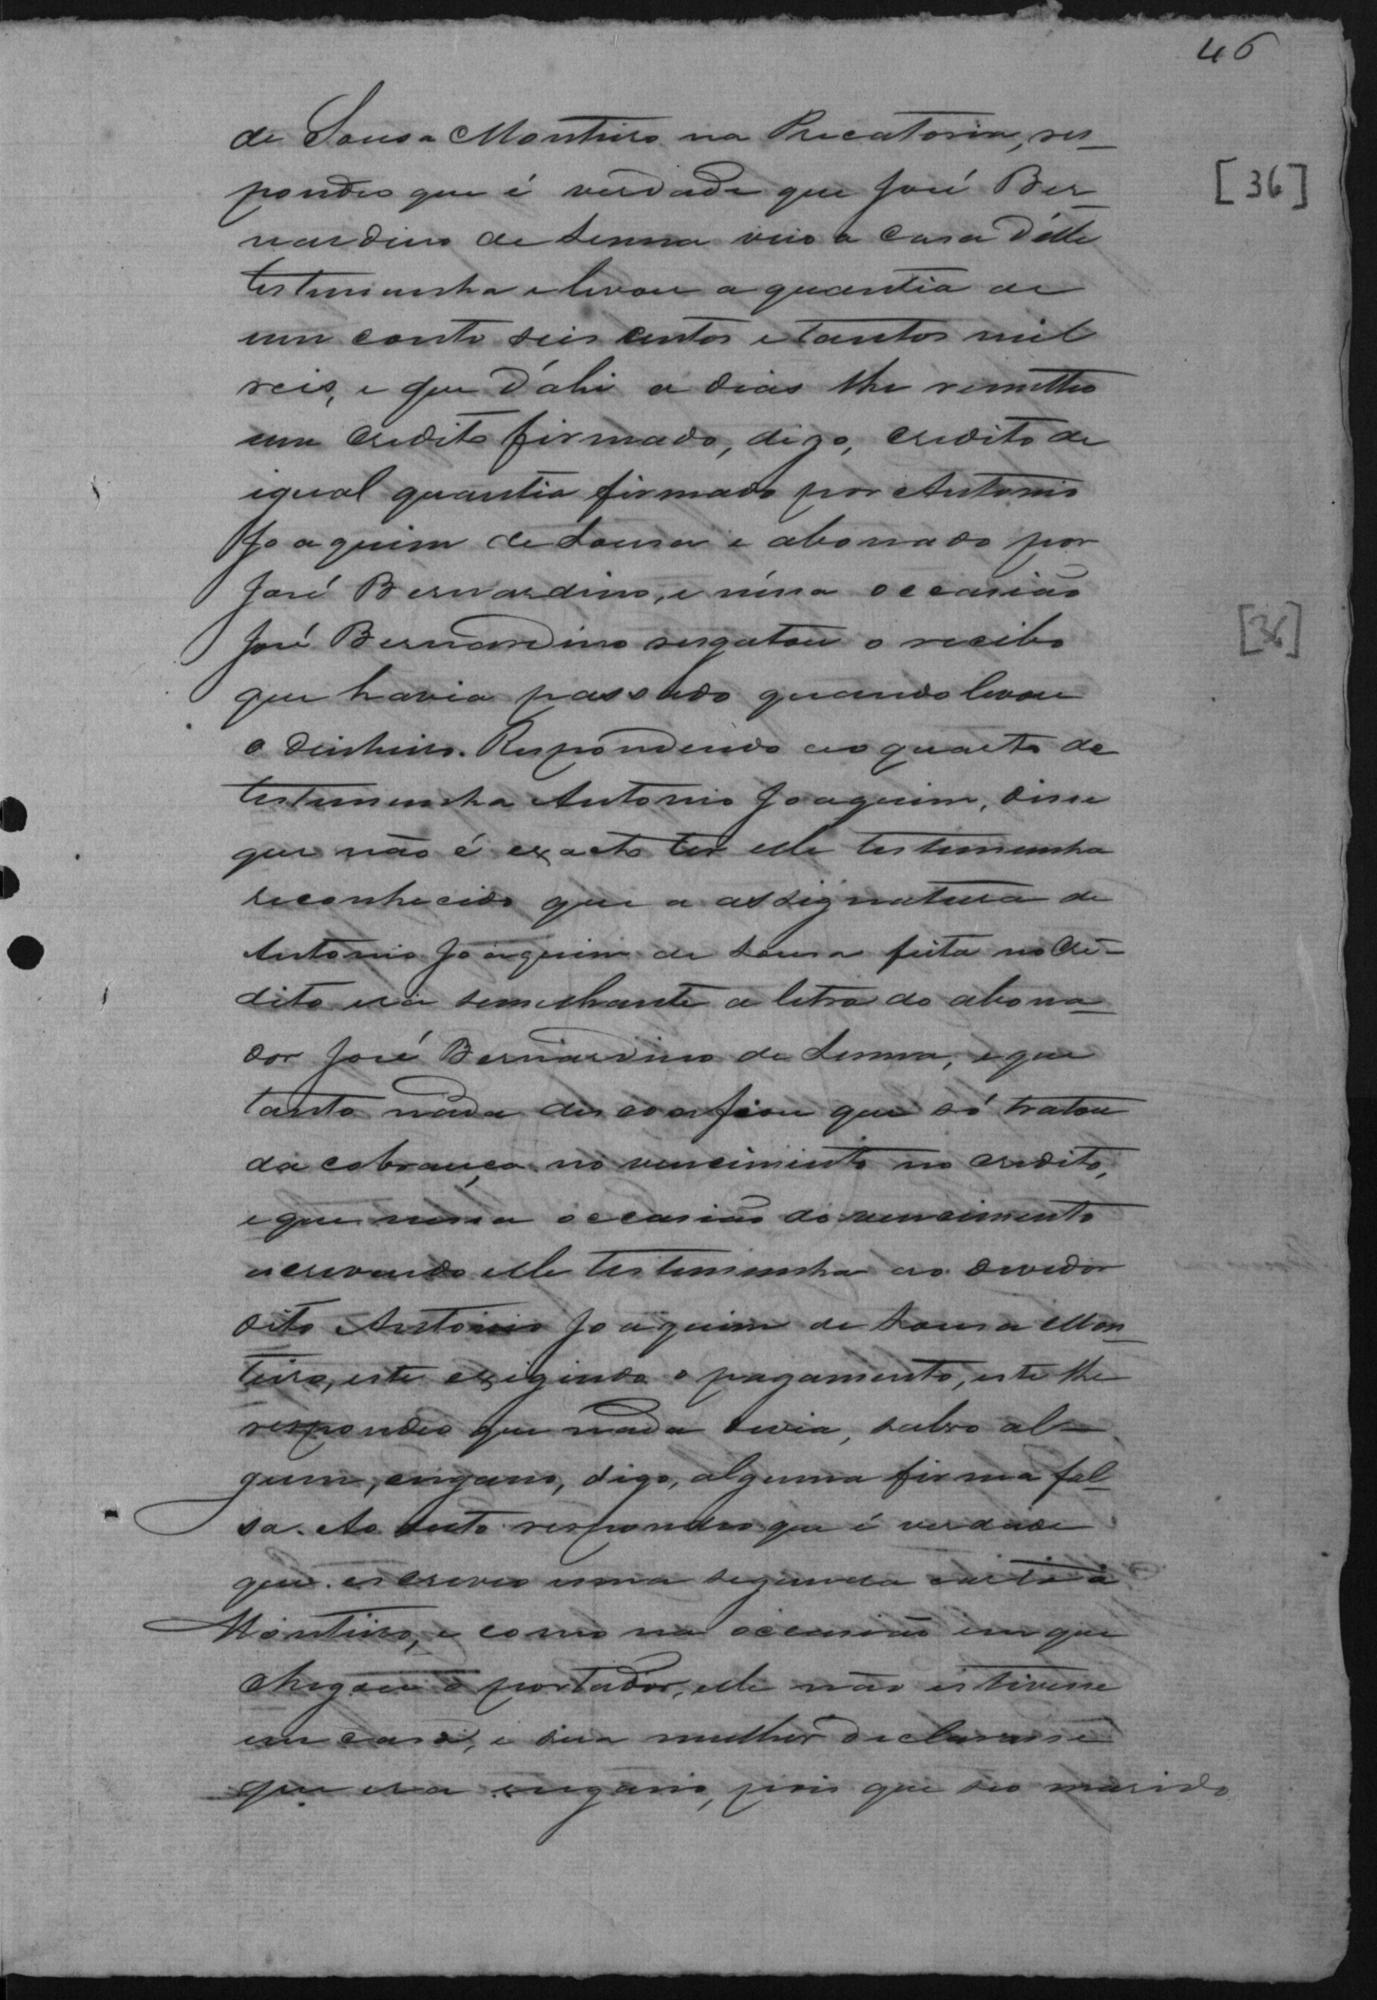 46
de Sousa Monteiro na Precatoria, res-
[36]
pondeo que é verdade que José Ber-
nardino de Senna veio a casa d'élle
testimunha e levou a quantia de
um conto seis centos e tantos mil
reis, e que d'ahi a dias lhe remetteo
um credito firmado, digo, credito de
igual quantia firmado por Antonio
Joaquim de Sousa e abonado por
José Bernardino, e néssa occasião
José Bernardino resgatou o recibo
[36]
que havia passado quando levou
o dinheiro. Respondendo ao quarto da
testimunha Antonio Joaquim, disse
que não é exacto ter elle testimunha
reconhecido que a assignatura de
Antonio Joaquim de Sousa feita no cre-
dito era semelhante a letra do abona-
dor José Bernardino de Senna, e que
tanto nada desconfiou que só tratou
da cobrança no vencimento no credito,
e que nessa occasião do vencimento
escrevendo elle testimunha ao devedor
dito Antonio Joaquim de Sousa Mon-
teiro, este exigindo o pagamento, este lhe
respondeo que nada devia, salvo al-
gum, engano, digo, alguma firma fal-
sa. Ao sexto respondeo que é verdade
que escreveo uma segunda carta á
Monteiro, e como na occasião em que
chegou o portador, elle não estivesse
em casa, e sua mulher declarasse
que era engano, pois que seo marido